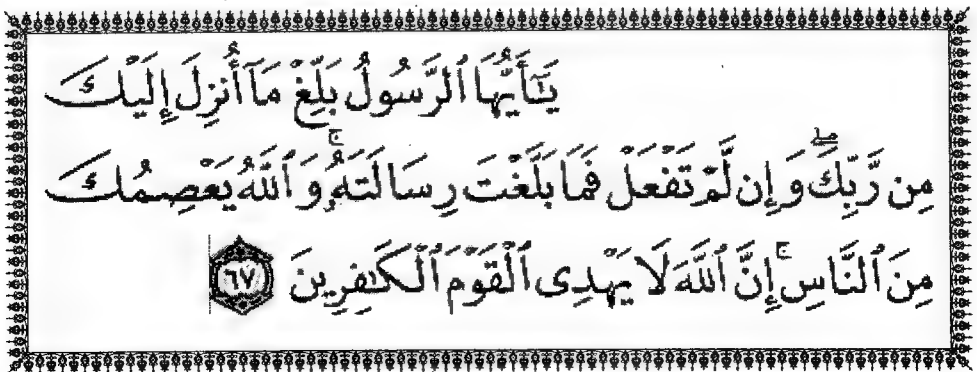 يَٰٓأَيُّهَا ٱلرَّسُولُ بَلِّغْ مَآ أُنزِلَ إِلَيْكَ
مِن رَّبِّكَ ۖ وَإِن لَّمْ تَفْعَلْ فَمَا بَلَّغْتَ رِسَالَتَهُۥ ۚ وَٱللَّهُ يَعْصِمُكَ
مِنَ ٱلنَّاسِ ۗ إِنَّ ٱللَّهَ لَا يَهْدِى ٱلْقَوْمَ ٱلْكَٰفِرِينَ ٦٧